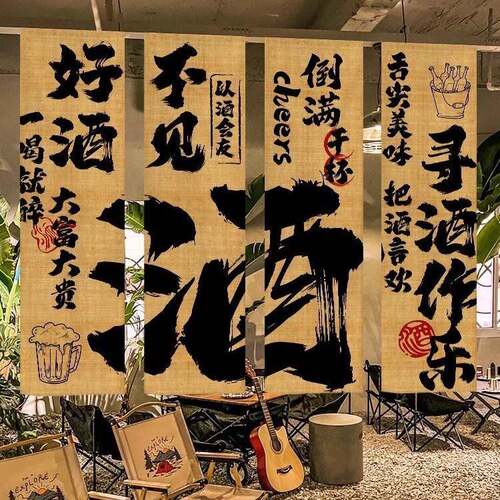 好酒
一喝就醉
大富大贵
不见
以酒会友
酒
倒满
cheers
干杯
舌尖美味
把酒言欢
寻酒作乐
酒
EXPLORE
EXPLORE